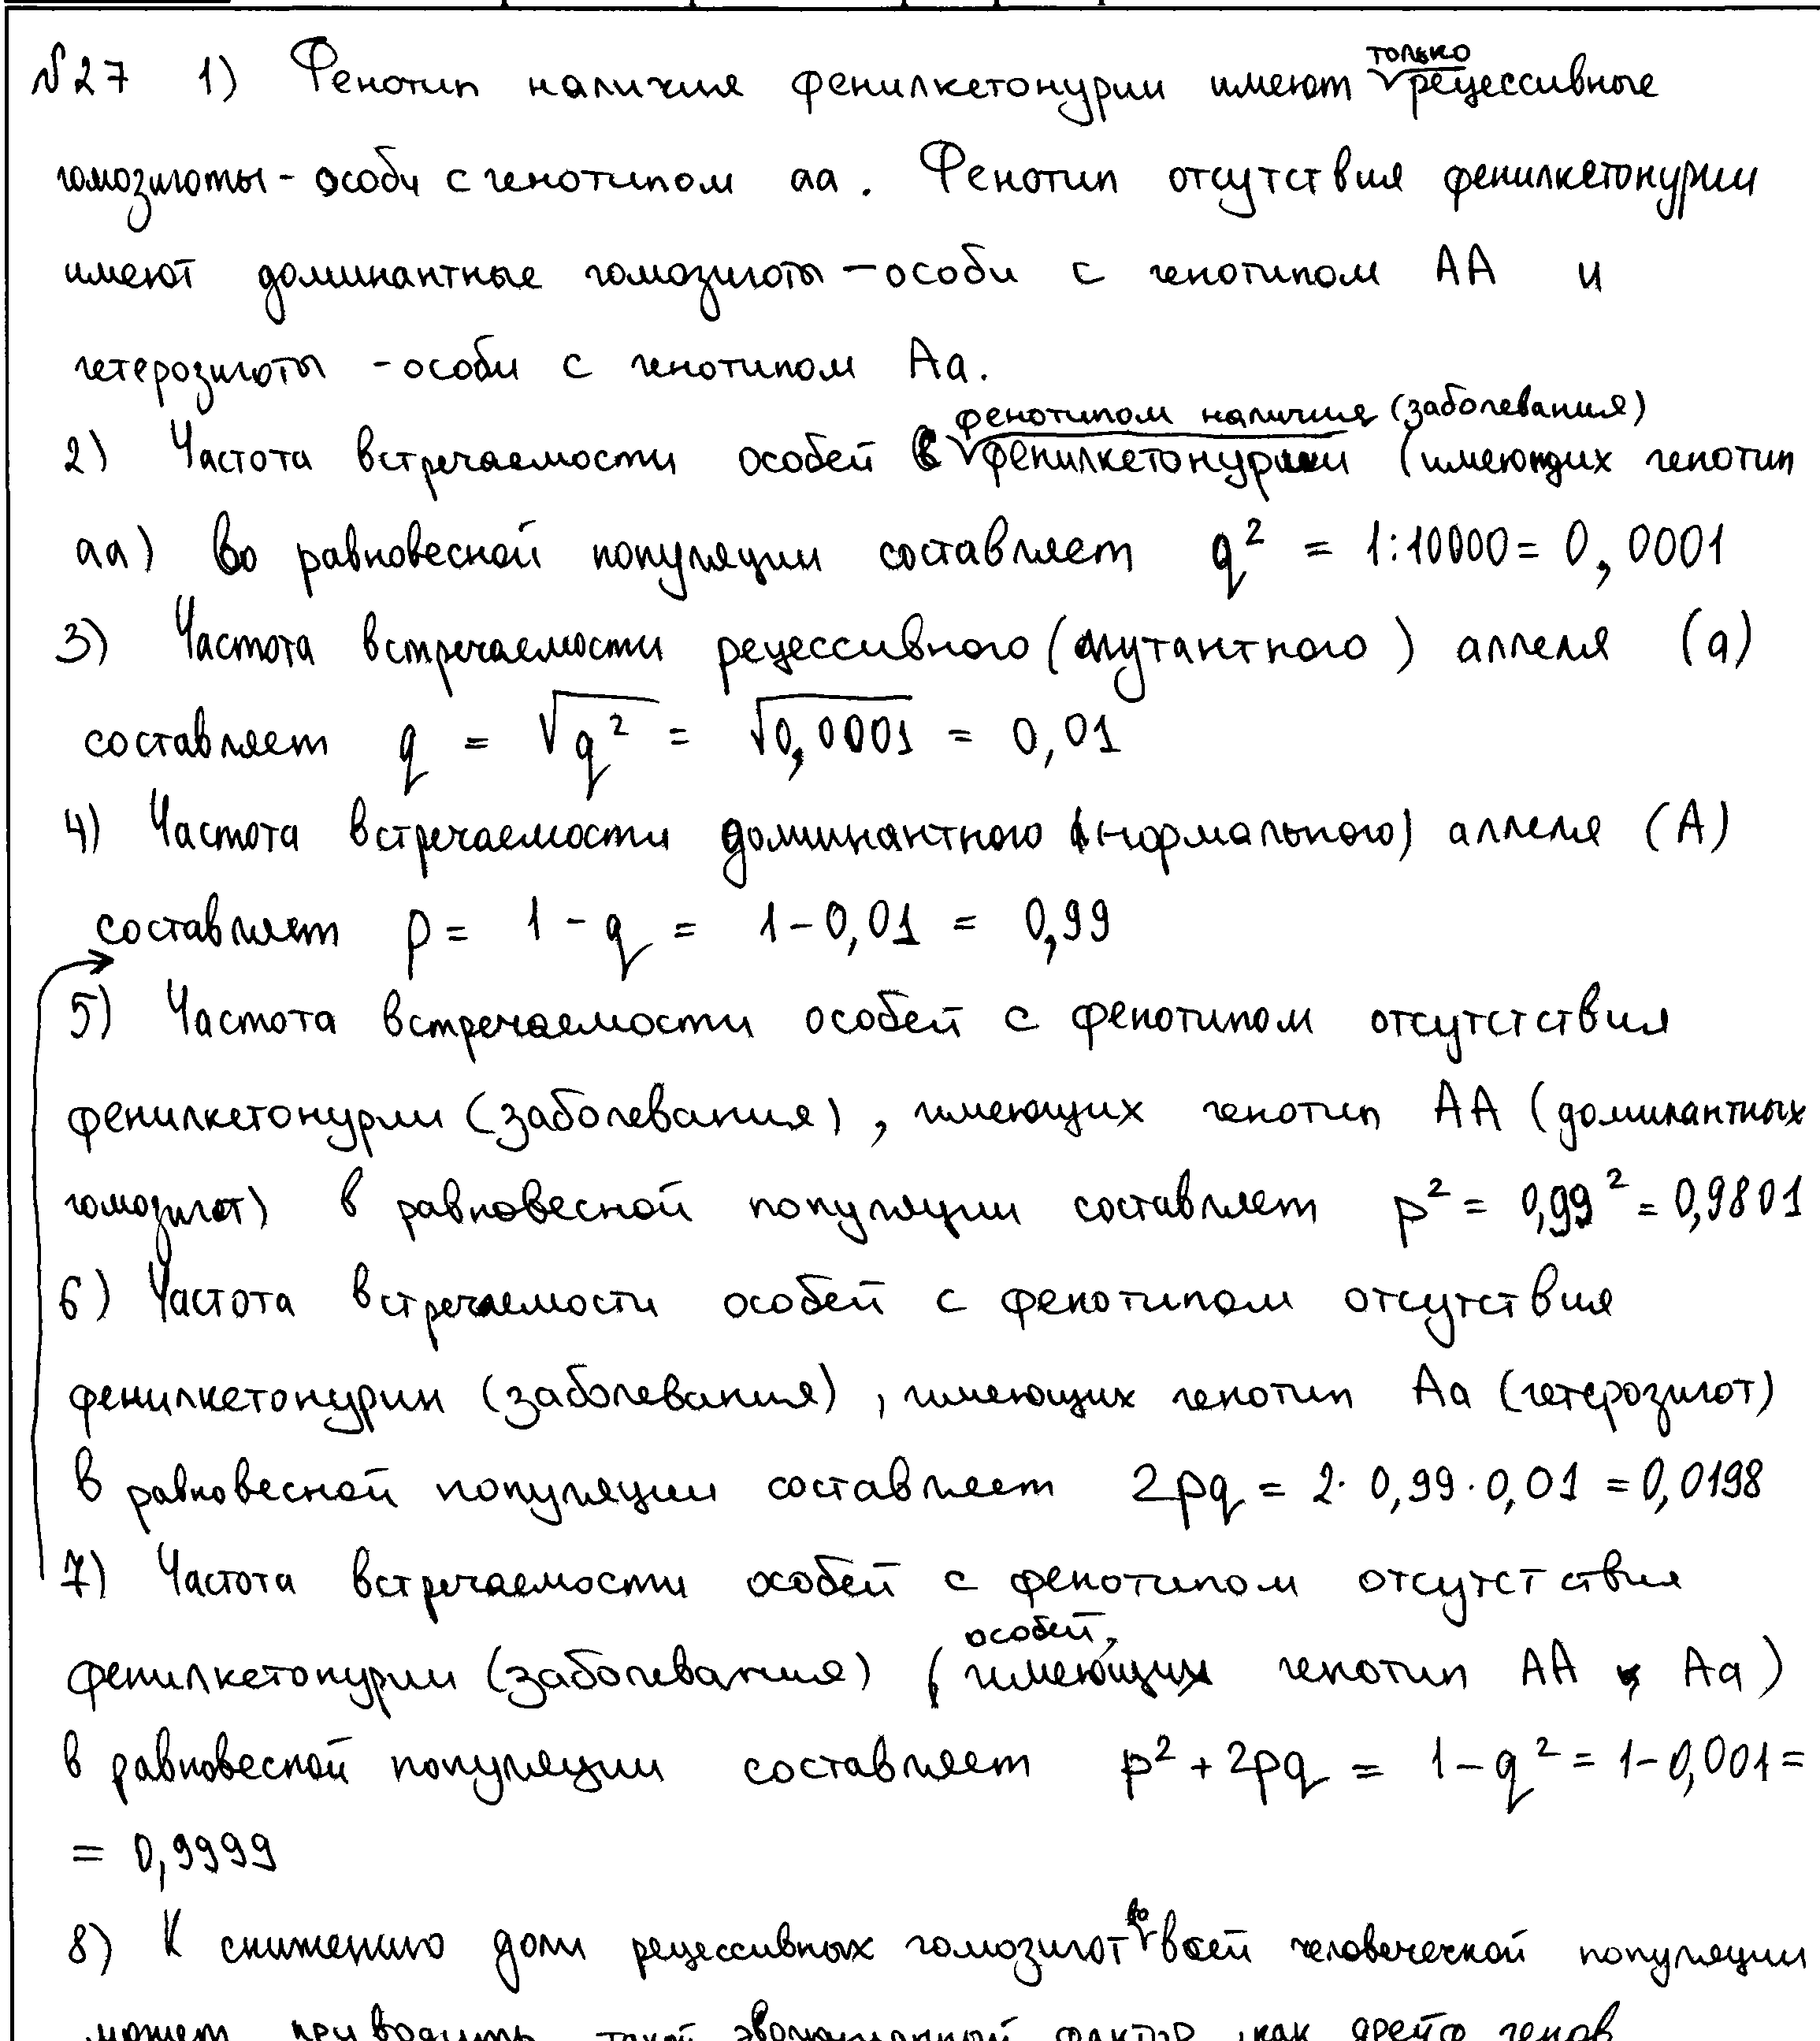 №27 1) Фенотип наличия фенилкетонурии имеют только рецессивные
гомозиготы - особи с генотипом аа. Фенотип отсутствия фенилкетонурии
имеют доминантные гомозиготы - особи с генотипом АА и
гетерозиготы - особи с генотипом Аа.
2) Частота встречаемости особей с фенотипом наличия фенилкетонурии (заболевания) (имеющих генотип
аа) во равновесной популяции составляет q² = 1:10000 = 0,0001
3) Частота встречаемости рецессивного (мутантного) аллеля (а)
составляет q = √q² = √0,0001 = 0,01
4) Частота встречаемости доминантного (нормального) аллеля (А)
составляет p = 1 - q = 1 - 0,01 = 0,99
5) Частота встречаемости особей с фенотипом отсутстствия
фенилкетонурии (заболевания), имеющих генотип АА (доминантных
гомозигот) в равновесной популяции составляет p² = 0,99² = 0,9801
6) Частота встречаемости особей с фенотипом отсутствия
фенилкетонурии (заболевания), имеющих генотип Аа (гетерозигот)
в равновесной популяции составляет 2pq = 2 · 0,99 · 0,01 = 0,0198
7) Частота встречаемости особей с фенотипом отсутствия
фенилкетонурии (заболевания) (особей, имеющих генотип АА и Аа)
в равновесной популяции составляет p² + 2pq = 1 - q² = 1 - 0,001 =
= 0,9999
8) К снижению доли рецессивных гомозигот во всей человеческой популяции
может приводить такой эволюционный фактор, как дрейф генов